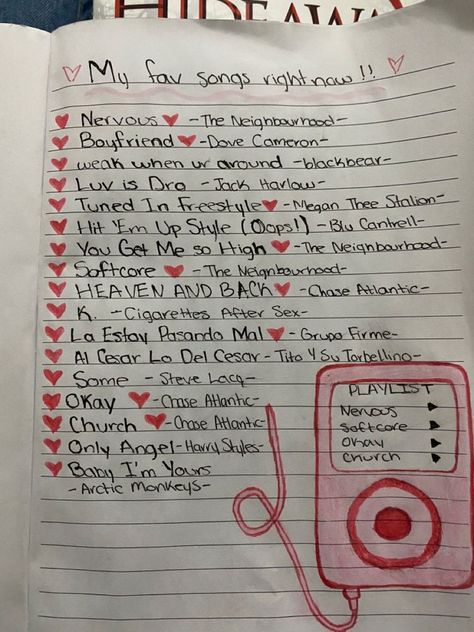 HIDEAWAY
My fav songs right now!!
Nervous -The Neighbourhood-
Boyfriend -Dove Cameron-
weak when ur around -blackbear-
Luv is Dro -Jack Harlow-
Tuned In Freestyle -Megan Thee Stalion-
Hit 'Em Up Style (Oops!) -Blu Cantrell-
You Get Me so High -The Neighbourhood-
Softcore -The Neighbourhood-
HEAVEN AND BACK -Chase Atlantic-
K. -Cigarettes After Sex-
La Estoy Pasando Mal -Grupo Firme-
Al Cesar Lo Del Cesar -Tito Y Su Torbellino-
Some -Steve Lacy-
OKay -Chase Atlantic-
Church -Chase Atlantic-
Only Angel -Harry Styles-
Baby I'm Yours
-Arctic Monkeys-
PLAYLIST
Nervous
Softcore
Okay
Church